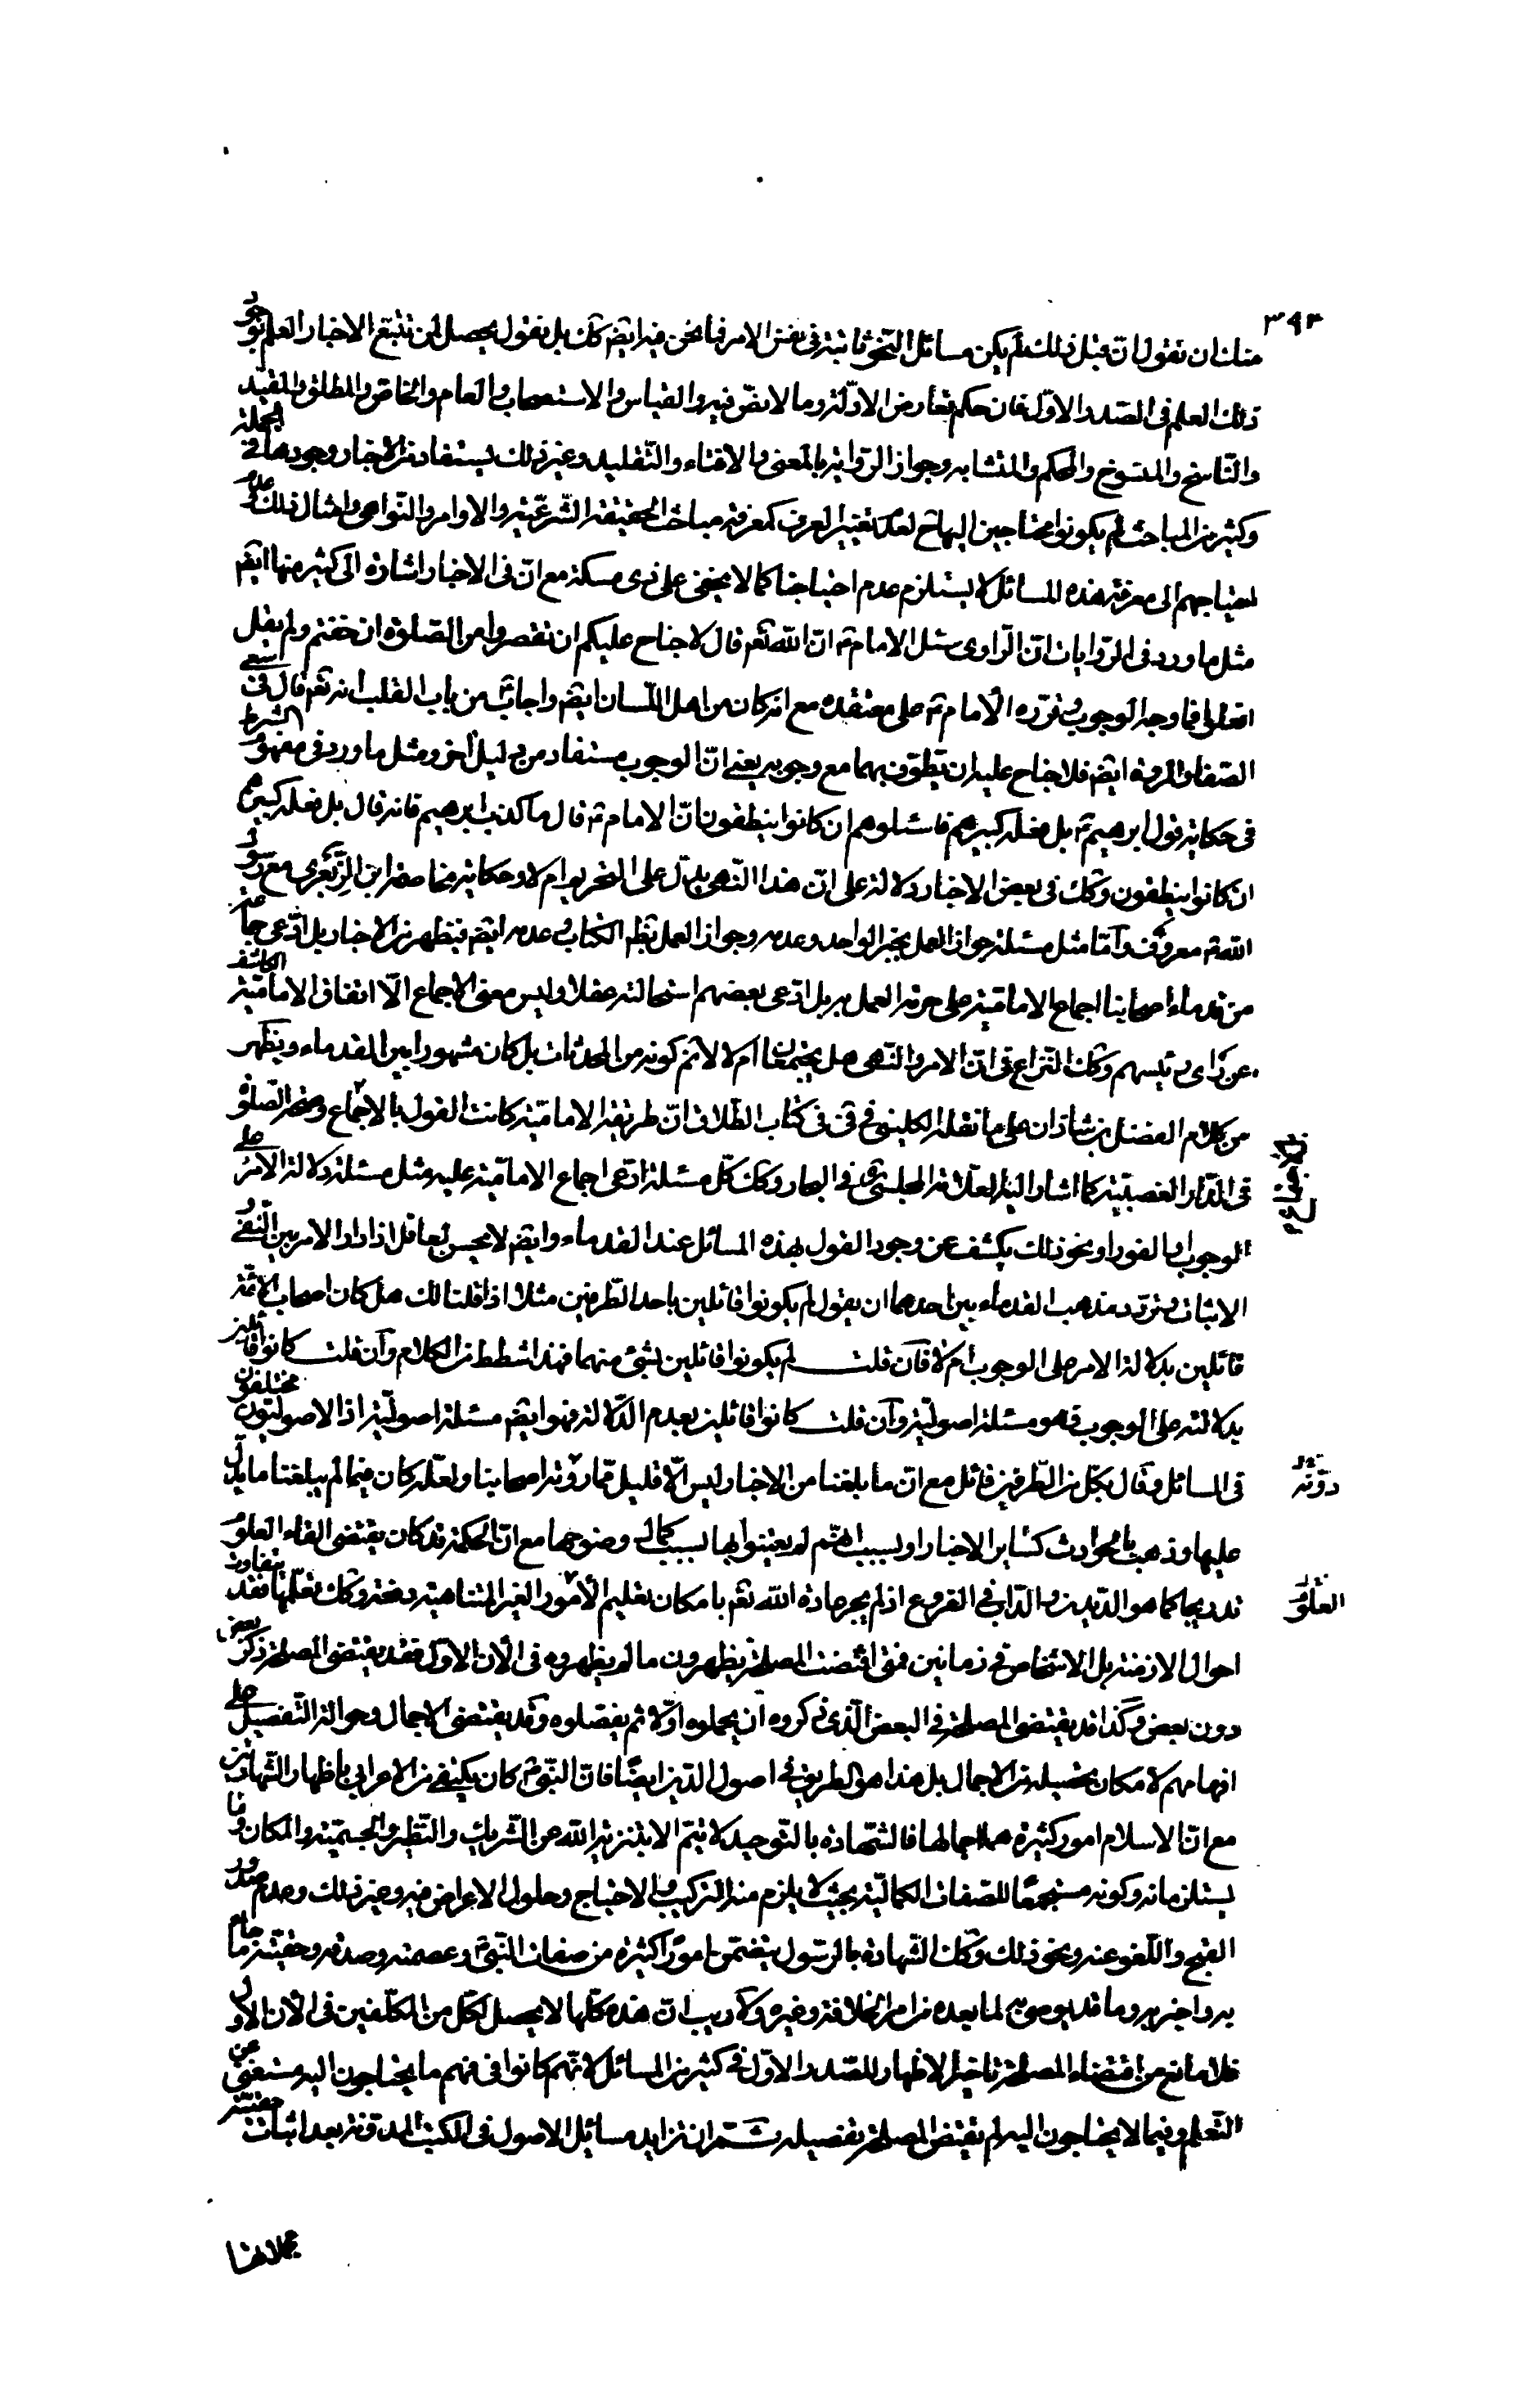 ٣٩٣
منك ان تقول ان قبل ذلك لم يكن مسائل النحو ثابتة فى نفس الامر فما نحن فيه ايضم كك بل نقول يحصل لمن تتبع الاخبار العلم بوجود
ذلك العلم فى الصدر الاول فان حكم تعارض الادلة وما لا نص فيه والقياس والاستصحاب والعام والخاص والمطلق والمقيد
والناسخ والمنسوخ والمحكم والمتشابه وجواز الرواية بالمعنى والافتاء والتقليد وغير ذلك يستفاد من الاخبار وجودها فى الجملة
وكثير من المباحث لم يكونوا محتاجين اليها ح لعدم تغيير العرف كمعرفة مباحث الحقيقة الشرعية والاوامر والنواهى وامثال ذلك وعدم
احتياجهم الى معرفة هذه المسائل لا يستلزم عدم احتياجنا كما لا يخفى على ذى مسكة مع ان فى الاخبار اشارة الى كثير منها ايضم
مثل ما ورد فى الروايات ان الراوى سئل الامام ع ان الله تعم قال لا جناح عليكم ان تقصروا من الصلوة ان خفتم ولم يقل
افعلوا فما وجه الوجوب وتقرره الامام ع على معتقده مع انه كان من اهل اللسان ايضم واجاب ع من باب القلب انه تعم قال فى السعى
الصفا والمروة ايضم فلا جناح عليه ان يطوف بهما مع وجوبه يعنى ان الوجوب مستفاد من دليل آخر ومثل ما ورد فى مفهوم الشرط
فى حكاية قول ابرهيم ع بل فعله كبيرهم فاسئلوهم ان كانوا ينطقون ان الامام ع قال ما كذب ابرهيم فانه قال بل فعله كبيرهم
ان كانوا ينطقون وكك فى بعض الاخبار دلالة على ان هذا النهى يدل على التحريم ام لا وحكاية مخاصمة ابن الزبعرى مع رسول
الله ص معروف واما مثل مسئلة جواز العمل بخبر الواحد وعدمه وجواز العمل بظم الكتاب وعدمه ايضم فيظهر من الاخبار بل ادعى جماعة
من قدماء اصحابنا اجماع الامامية على حرمة العمل به بل ادعى بعضهم استحالته عقلا وليس معنى الاجماع الا اتفاق الامامية الكاشف
عن راى رئيسهم وكك النزاع فى ان الامر والنهى هل يجتمعان ام لا لا نم كونه من المحدثات بل كان مشهورا بين القدماء ويظهر
من كلام الفضل بن شاذان على ما نقله الكلينى فى فى كتاب الطلاق ان طريقة الامامية كانت القول بالاجتماع وصحة الصلوة
فى الدار الغصبية كما اشار اليه العلامة المجلسى ره فى البحار وكك كل مسئلة ادعى اجماع الامامية عليه مثل مسئلة دلالة الامر على
الوجوب او الفور او نحو ذلك يكشف عن وجود القول بهذه المسائل عند القدماء وايضم لا يحسن لعاقل اذا دار الامر بين النفى و
الاثبات وتردد مذهب القدماء بين احدهما ان يقول لم يكونوا قائلين باحد الطرفين مثلا اذا قلنا لك هل كان اصحاب الائمة
قائلين بدلالة الامر على الوجوب ام لا فان قلت لم يكونوا قائلين بشئ منهما فهذا شطط من الكلام وان قلت كانوا قائلين
بدلالته على الوجوب فهو مسئلة اصولية وان قلت كانوا قائلين بعدم الدلالة فهو ايضم مسئلة اصولية اذ الاصوليون مختلفون
فى المسائل وقال بكل من الطرفين قائل مع ان ما بلغنا من الاخبار ليس الا قليل مما روته اصحابنا ولعله كان فيما لم يبلغنا ما يدل
دونه
عليها وذهب بالحوادث كسائر الاخبار او بسبب انهم لم يعتنوا بها بسبب كمال وضوحها مع ان الحكمة قد كان يقتضى القاء العلوم
تدريجا كما هو الديدن والداب فى الفروع اذ لم يجر عادة الله تعم بامكان تعليم الامور الغير المتناهية دفعة وكك تعلمها فقد يتفاوت
العلوم
احوال الازمنة بل الاشخاص فى زمانين فمتى اقتضت المصلحة يظهرون ما لم يظهروه فى الآن الاول فقد يقتضى المصلحة ذكر بعض
دون بعض وكذا قد يقتضى المصلحة فى البعض الذى ذكروه ان يجملوه اولا ثم يفصلوه وقد يقتضى الاجمال وحوالة التفصيل على
افهامهم لامكان تحصيله من الاجمال بل هذا هو الطريق فى اصول الدين ايضا فان النبى ص كان يكتفى من الاعرابى باظهار الشهادتين
مع ان الاسلام امور كثيرة هما اجمالها فالشهادة بالتوحيد لا يتم الا بتنزيه الله عن الشريك والنظير والجسمية والمكان وما
يستلزمانه وكونه مستجمعا للصفات الكمالية بحيث لا يلزم منه التركيب والاحتياج وحلول الاعراض فيه وغير ذلك وعدم صدور
القبح واللغو عنه ونحو ذلك وكك الشهادة بالرسول يتضمن امورا كثيرة من صفات النبى ص وعصمته وصدقه وحقيته ما جاء
به واخبر به وما قد يوصى به لما بعده من امر الخلافة وغيره ولا ريب ان هذه كلها لا يحصل لكل من المكلفين فى الآن الاول
فلا مانع من اقتضاء المصلحة تاخير الاظهار للصدر الاول فى كثير من المسائل لانهم كانوا فى فهم ما يحتاجون اليه مستغنى عن
التعلم وفيما لا يحتاجون اليه لم يقتض المصلحة تفصيله ثم ان تزايد مسائل الاصول فى الكتب المدونة بعد اثبات حقيته